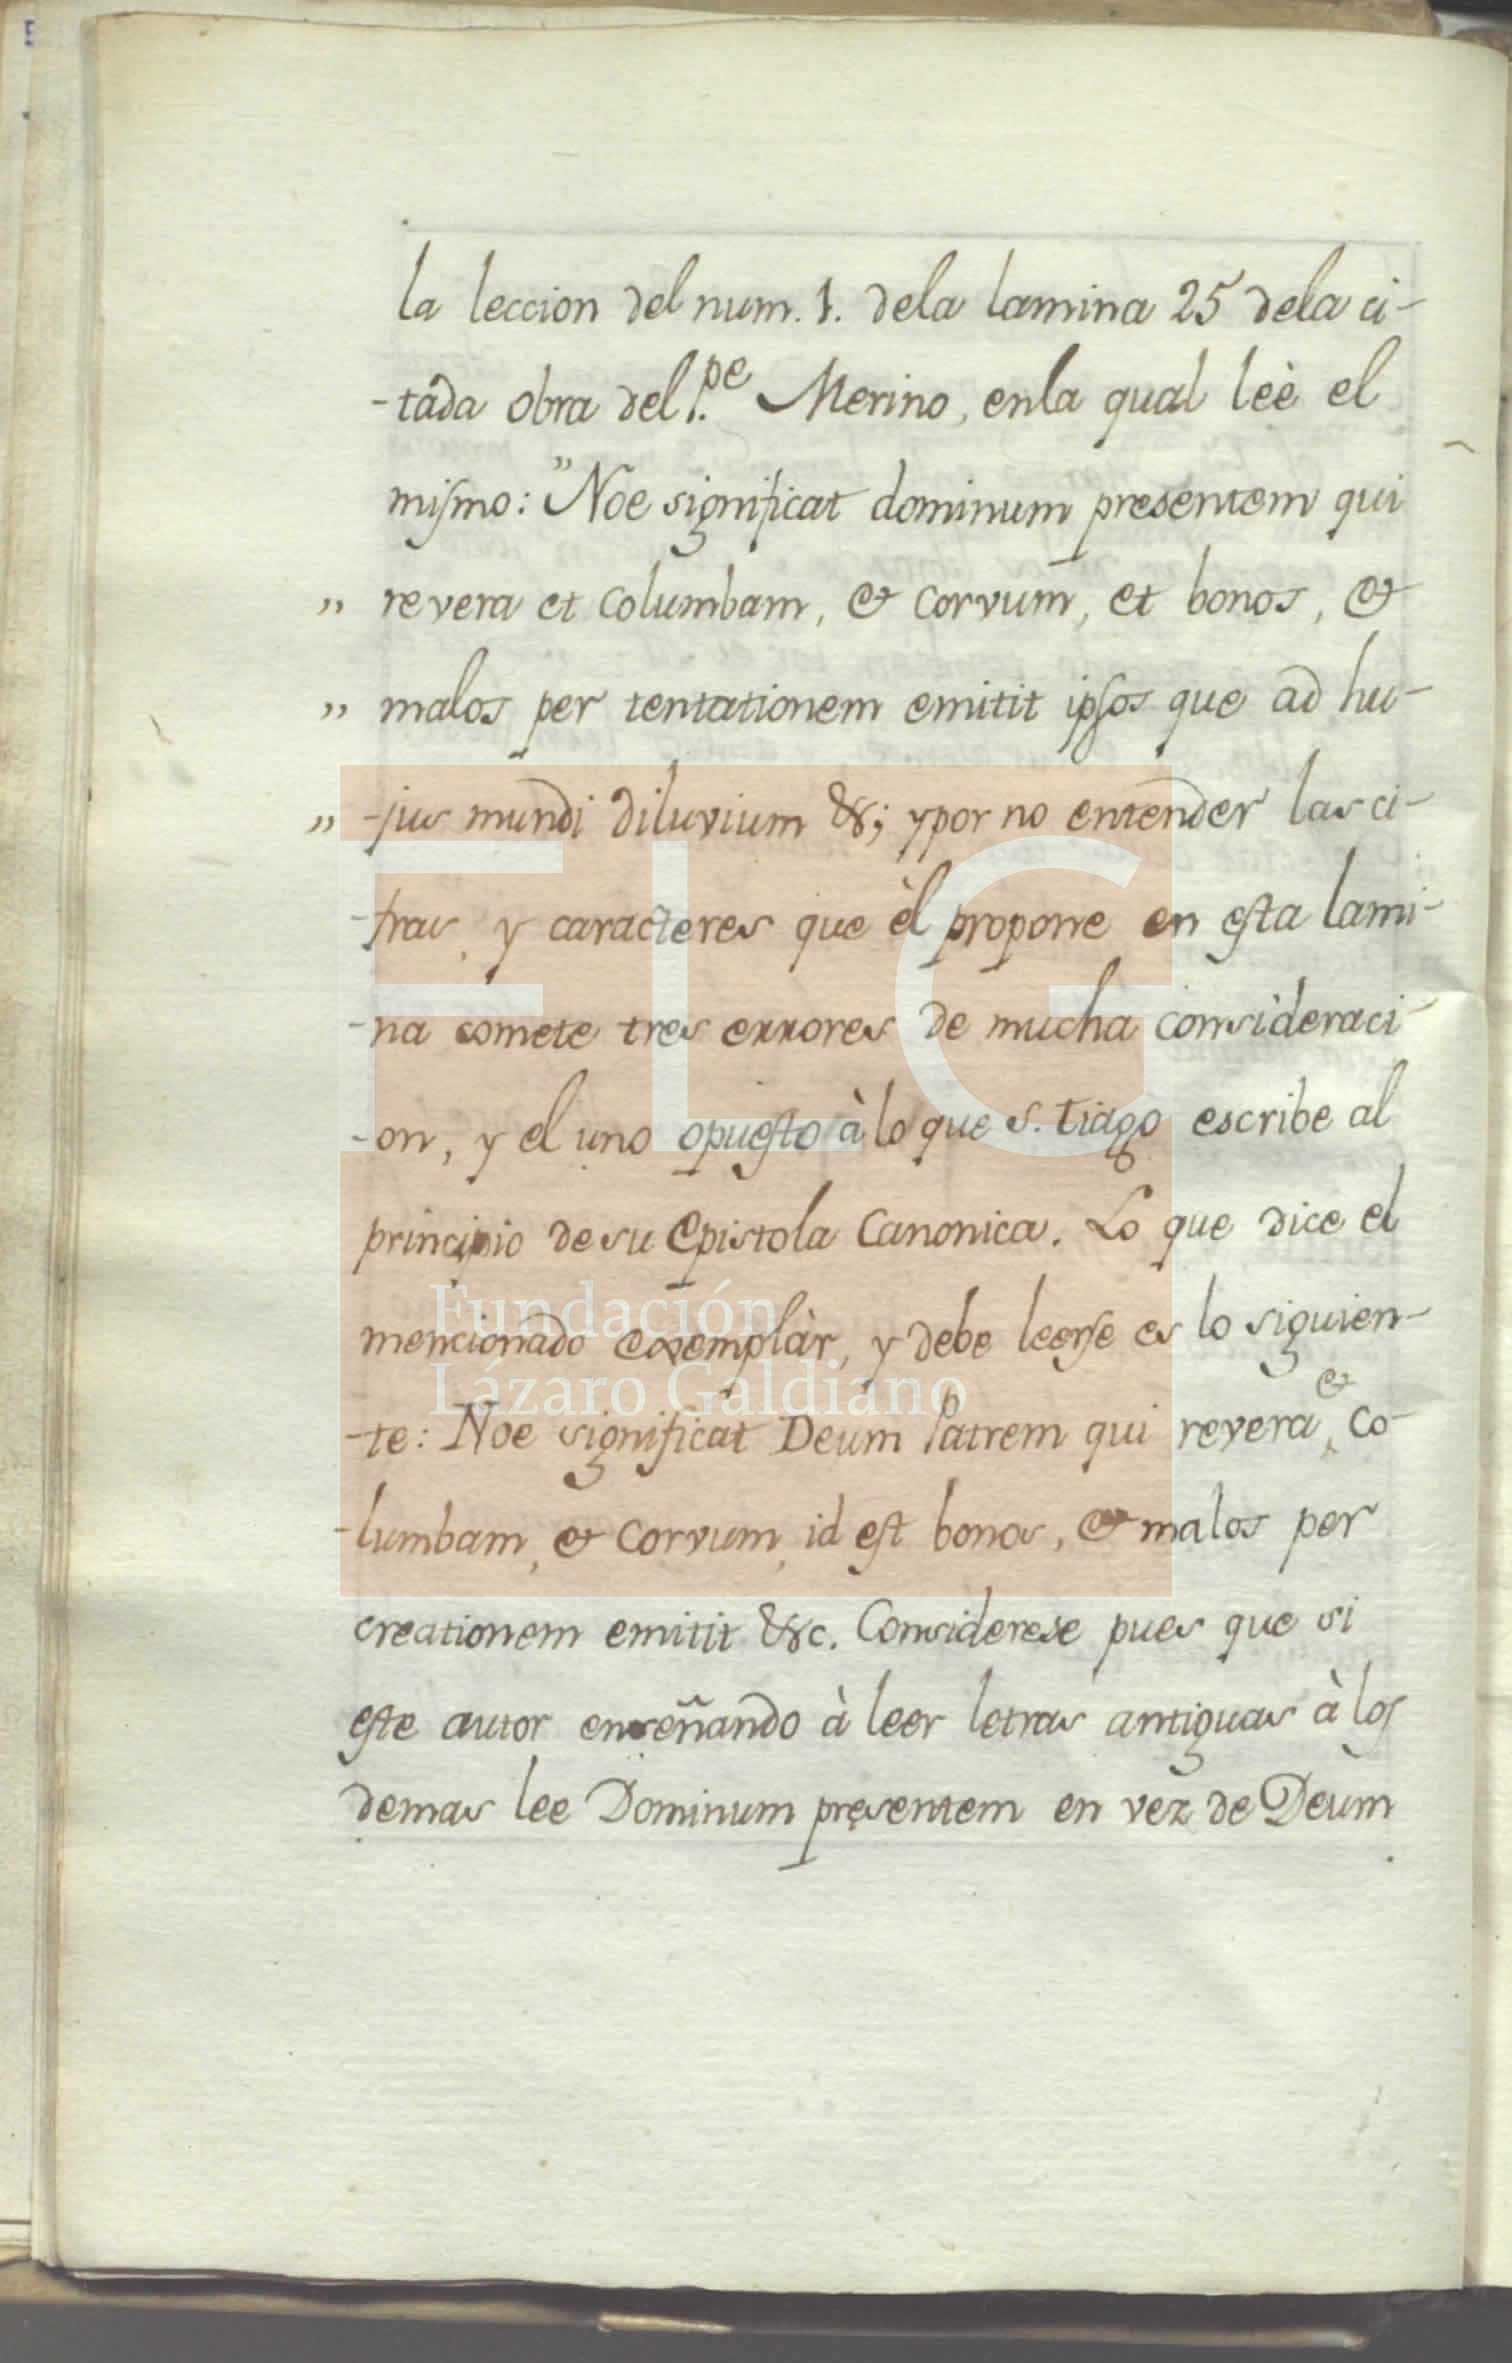 la leccion del num. 1. dela lamina 25 dela ci-
-tada obra del P.pe Merino, enla qual leè el
mismo: "Noe significat dominum presentem qui
" revera et columbam, & corvum, et bonos, &
" malos per tentationem emitit ipsos que ad hu-
" -jus mundi diluvium &; ypor no entender las ci-
-fras, y caracteres que èl propone en esta lami-
-na comete tres errores de mucha consideraci-
-on, y el uno opuesto à lo que S. Tiago escribe al
principio de su Epistola Canonica. Lo que dice el
mencionado exemplàr, y debe leerse es lo siguien-
-te: Noe significat Deum Patrem qui revera & co-
-lumbam, & corvum, id est bonos, & malos per
creationem emitit &c. Considerese pues que si
este autor enseñando à leer letras antiguas à los
demas lee Dominum presentem en vez de Deum
FLG
Fundación
Lázaro Galdiano